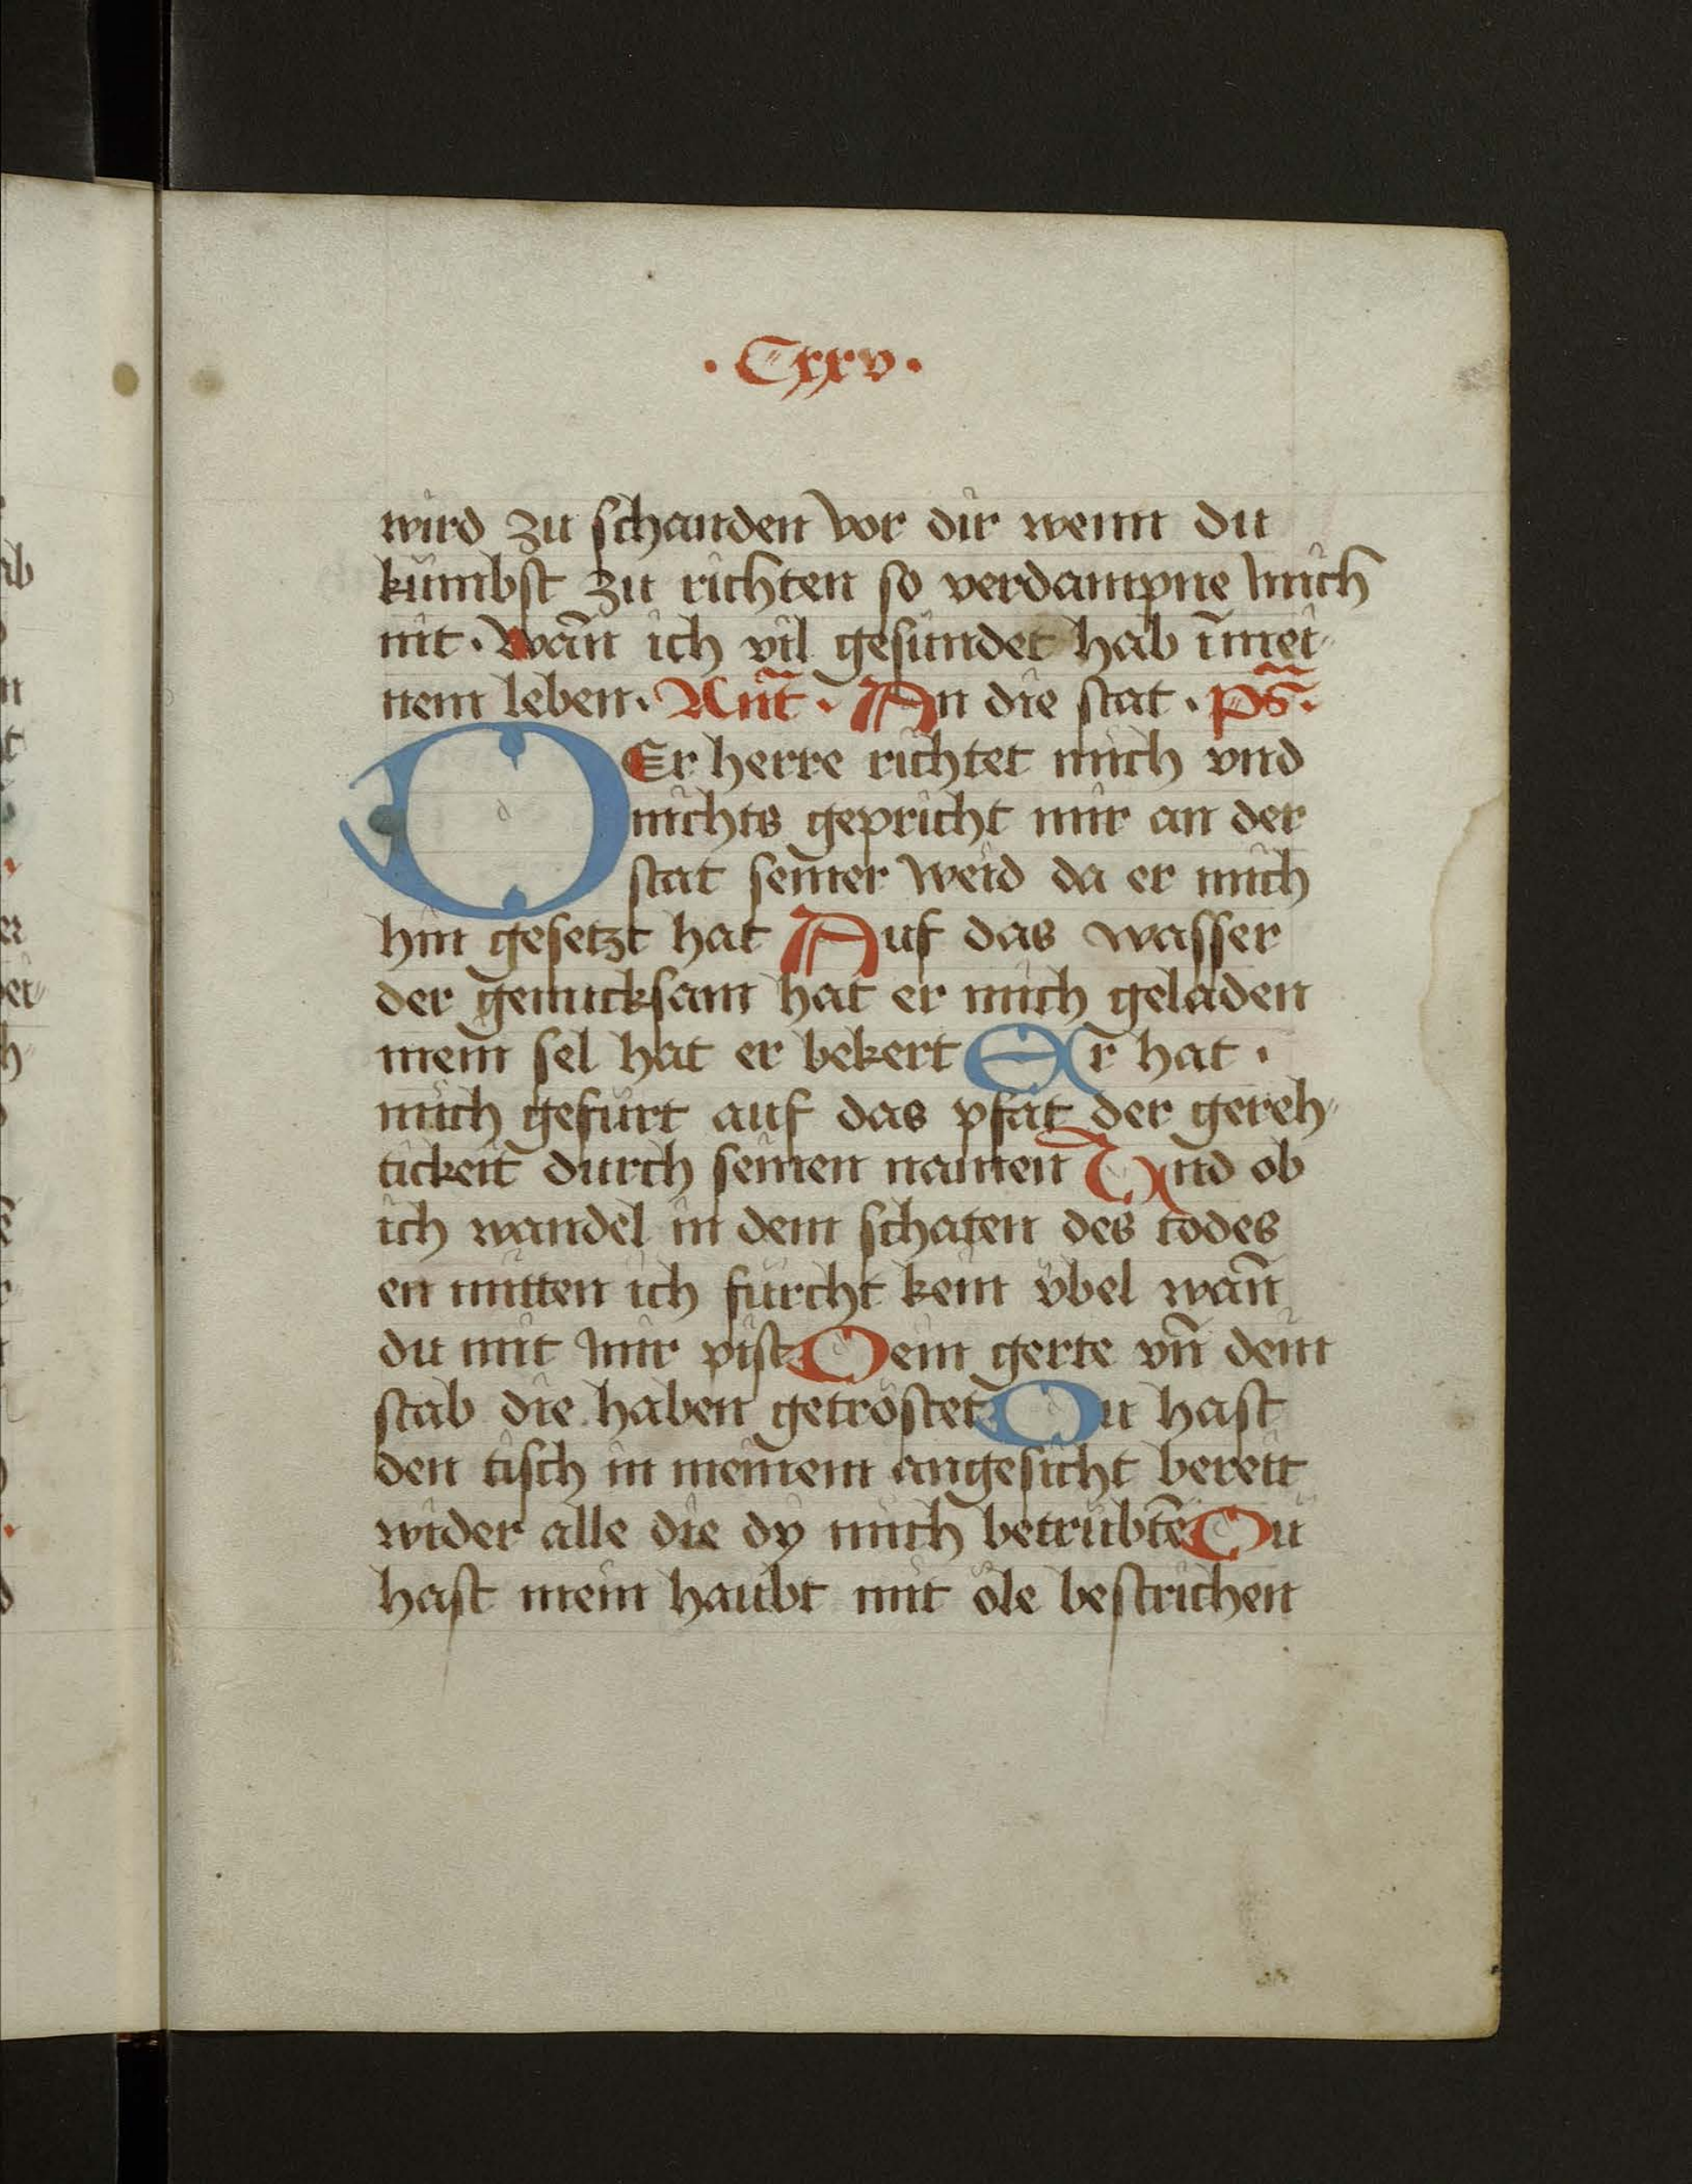 · Cxxv ·
wird zu schanden vor dir wenn du
kumbst zu richten so verdampne mich
nit · wañ ich vil gesundet hab īmei-
nem leben · Añt · An die stat · ps̄ ·
DEr herre richtet mich vnd
nichts gepricht mir an der
stat seiner weid da er mich
hin gesetzt hat Auf das wasser
der genucksam hat er mich geladen
mein sel hat er bekert Er hat ·
mich gefürt auf das pfat der gereh-
tickeit durch seinen namen Vnd ob
ich wandel in dem schaten des todes
en mitten ich fürcht kein v̈bel wañ
du mit mir pist Dein gerte vñ dein
stab die haben getröstet Du hast
den tisch in meinem angesicht bereit
wider alle die dy mich betrübtē Du
hast mein haubt mit öle bestrichen